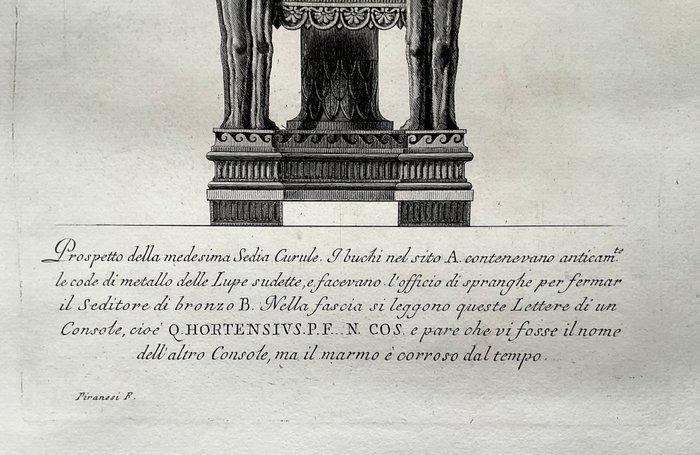 Prospetto della medesima Sedia Curule. I buchi nel sito A. contenevano anticam.te
le code di metallo delle Lupe sudette, e facevano l'officio di spranghe per fermar
il Seditore di bronzo B. Nella fascia si leggono queste Lettere di un
Console, cioè Q.HORTENSIVS.P.F...N. COS. e pare che vi fosse il nome
dell'altro Console, ma il marmo è corroso dal tempo.
Piranesi F.